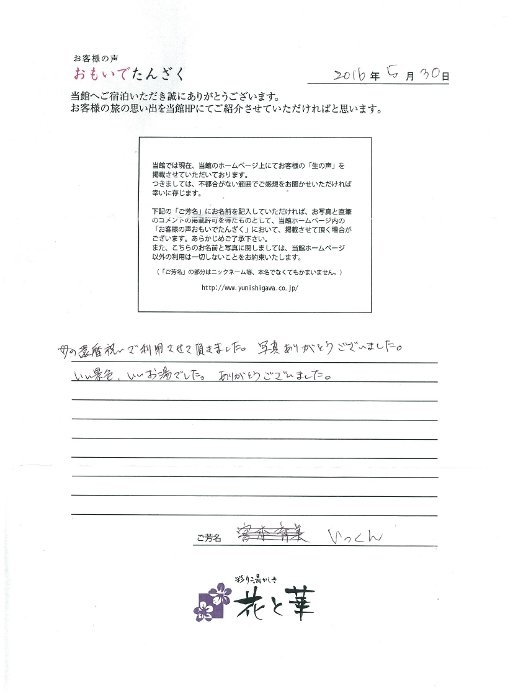 お客様の声
おもいでたんざく
2016年 5月 30日
当館へご宿泊いただき誠にありがとうございます。
お客様の旅の思い出を当館HPにてご紹介させていただければと思います。
当館では現在、当館のホームページ上にてお客様の「生の声」を
掲載させていただいております。
つきましては、不都合がない範囲でご感想をお聞かせいただければ
幸いに存じます。
下記の「ご芳名」にお名前を記入していただければ、お写真と直筆
のコメントの掲載許可を得たものとして、当館ホームページ内の
「お客様の声おもいでたんざく」において、掲載させて頂く場合が
ございます。あらかじめご了承下さい。
また、こちらのお名前と写真に関しましては、当館ホームページ
以外の利用は一切しないことをお約束いたします。
(「ご芳名」の部分はニックネーム等、本名でなくてもかまいません。)
http://www.yunishigawa.co.jp/
母の還暦祝いで利用させて頂きました。写真ありがとうございました。
いい景色、いいお湯でした。ありがとうございました。
ご芳名 いっくん
彩り湯かしき
花と華